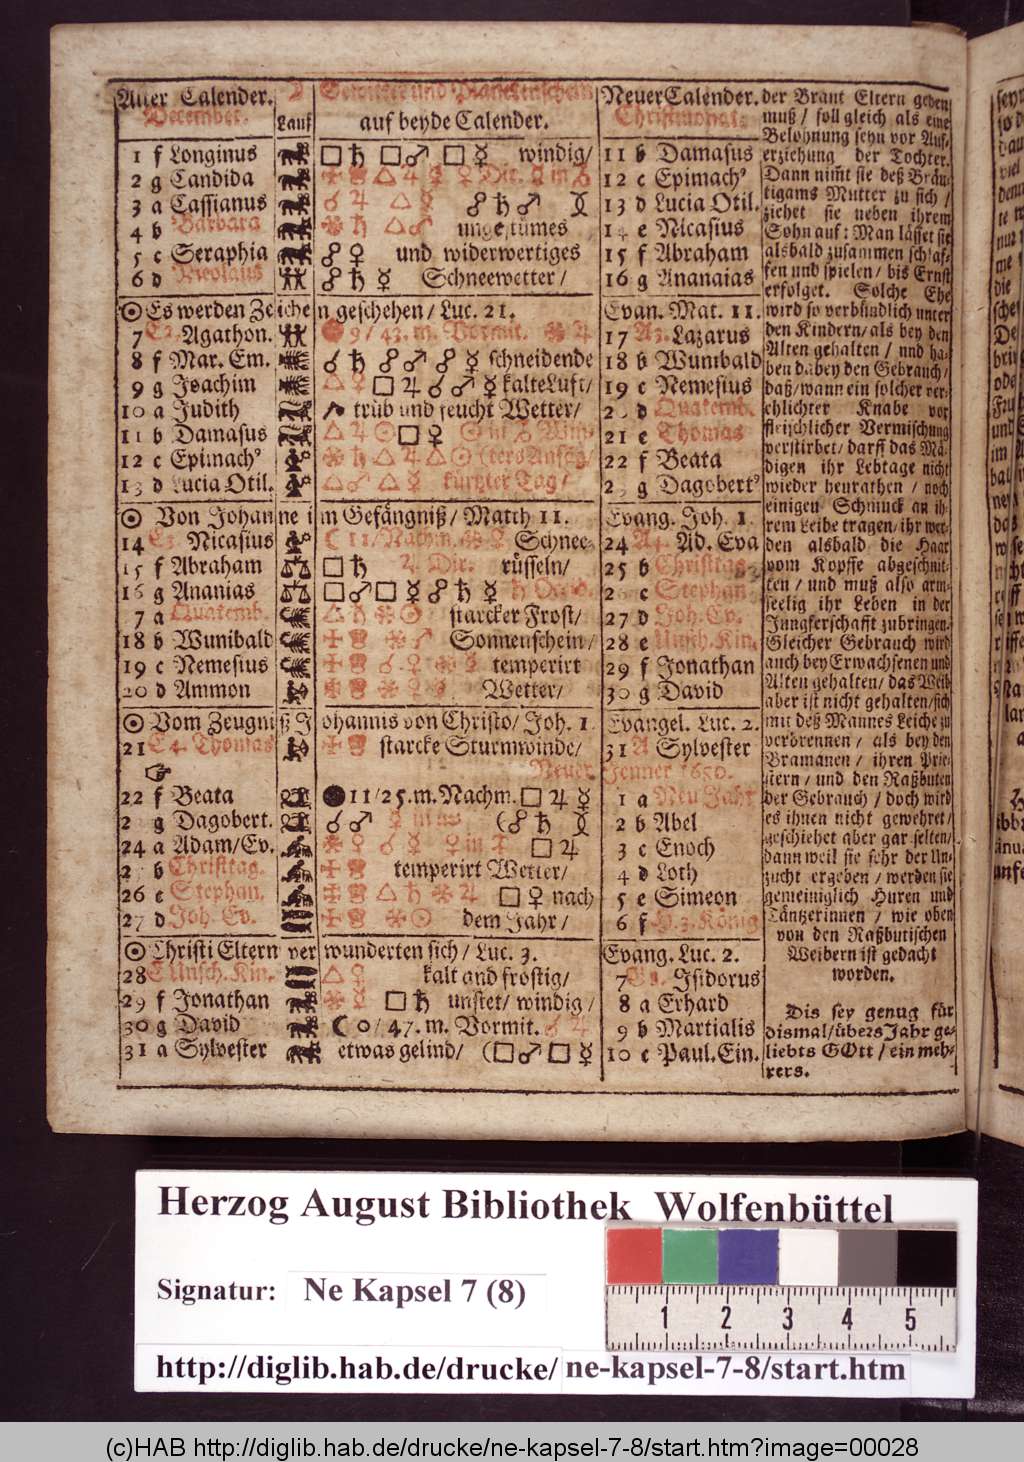 Alter Calender.
December.
Lauf
auf beyde Calender.
1 f Longinus □ ♄ □ ♂ □ ☿ windig/
2 g Candida
3 a Cassianus ☍ ♄ ♂
4 b Barbara ungestümes
5 c Seraphia ☍ ♀ und widerwertiges
6 d Nicolaus ☍ ♄ ☿ Schneewetter/
☉ Es werden Zeichen geschehen/ Luc. 21.
7 Agathon. 9/43. m. Vormit.
8 f Mar. Em. ☌ ♄ ☍ ♂ ☍ ☿ schneidende
9 g Joachim □ ♃ ☌ ♂ ☿ kalte Luft/
10 a Judith trüb und feucht Wetter/
11 b Damasus
12 c Epimach⁹ (ters Anfãg/
13 d Lucia Otil. kürtzter Tag/
☉ Von Johanne im Gefängniß/ Matth 11.
14 Nicasius Schnee-
15 f Abraham □ ♄ rüsseln/
16 g Ananias □ ♂ □ ☿ ☍ ♄ ☿
7 a Quatemb. starcker Frost/
18 b Wunibald Sonnenschein/
19 c Nemesius temperirt
20 d Ammon Wetter/
☉ Vom Zeugniß Johannis von Christo/ Joh. 1.
21 E 4. Thomas starcke Sturmwinde/
☞
22 f Beata 11/25. m. Nachm. □ ♃ ☿
2 g Dagobert. ☌ ♂ (☍ ♄
24 a Adam/Ev. □ ♃
2 b Christtag. temperirt Wetter/
26 c Stephan. □ ♀ nach
27 d Joh. Ev. dem Jahr/
☉ Christi Eltern verwunderten sich/ Luc. 3.
28 E Unsch. Kin. kalt and frostig/
29 f Jonathan □ ♄ unstet/ windig/
30 g David ☾ 0/47. m. Vormit. ☌ ♃
31 a Sylvester etwas gelind/ (□ ♂ □ ☿
Neuer Calender.
Christmonat.
11 b Damasus
12 c Epimach⁹
13 d Lucia Otil.
14 e Nicasius
15 f Abraham
16 g Ananaias
Evan. Mat. 11.
17 A3. Lazarus
18 b Wunibald
19 c Nemesius
2 d Quatemb.
21 e Thomas
22 f Beata
2 g Dagobert⁹
Evang. Joh. 1.
24 A4. Ad. Eva
25 b Christtag
2 c Stephan
27 d Joh. Ev.
28 e Unsch. Kin.
29 f Jonathan
30 g David
Evangel. Luc. 2.
31 A Sylvester
Neuer Jenner 1650.
1 a Neu Jahr
2 b Abel
3 c Enoch
4 d Loth
5 e Simeon
6 f H. 3. König
Evang. Luc. 2.
7 Isidorus
8 a Erhard
9 b Martialis
10 c Paul. Ein.
der Braut Eltern geben
muß/ soll gleich als eine
Belohnung seyn vor Auf-
erziehung der Tochter.
Dann nim̃t sie deß Bräu-
tigams Mutter zu sich/
ziehet sie neben ihrem
Sohn auf: Man lässet sie
alsbald zusammen schlaf-
fen und spielen/ bis Ernst
erfolget. Solche Ehe
wird so verbündlich unter
den Kindern/ als bey den
Alten gehalten/ und ha-
ben dabey den Gebrauch/
daß/ wann ein solcher ver-
ehlichter Knabe vor
fleischlicher Vermischung
verstirbet/ darff das Mä-
digen ihr Lebtage nicht
wieder heurathen/ noch
einigen Schmuck an ih-
rem Leibe tragen/ ihr wer-
den alsbald die Haar
vom Kopffe abgeschnit-
ten/ und muß also arm-
seelig ihr Leben in der
Jungferschafft zubringen.
Gleicher Gebrauch wird
auch bey Erwachsenen und
Alten gehalten/ das Weib
aber ist nicht gehalten/ sich
mit deß Mannes Leiche zu
verbrennen/ als bey den
Bramanen/ ihren Prie-
stern/ und den Raßbuten
der Gebrauch/ doch wird
es ihnen nicht gewehret/
geschiehet aber gar selten/
dann weil sie sehr der Un-
zucht ergeben/ werden sie
gemeiniglich Huren und
Täntzerinnen/ wie oben
von den Raßbutischen
Weibern ist gedacht
worden.
Dis sey genug für
dismal/ übers Jahr ge-
liebts GOtt/ ein meh-
rers.
Herzog August Bibliothek Wolfenbüttel
Signatur: Ne Kapsel 7 (8)
1 2 3 4 5
http://diglib.hab.de/drucke/ne-kapsel-7-8/start.htm
(c)HAB http://diglib.hab.de/drucke/ne-kapsel-7-8/start.htm?image=00028